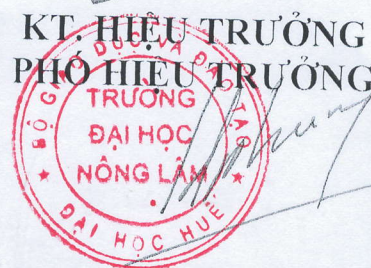 KT. HIỆU TRƯỞNG
PHÓ HIỆU TRƯỞNG
BỘ GIÁO DỤC VÀ ĐÀO TẠO
TRƯỜNG
ĐẠI HỌC
NÔNG LÂM
ĐẠI HỌC HUẾ